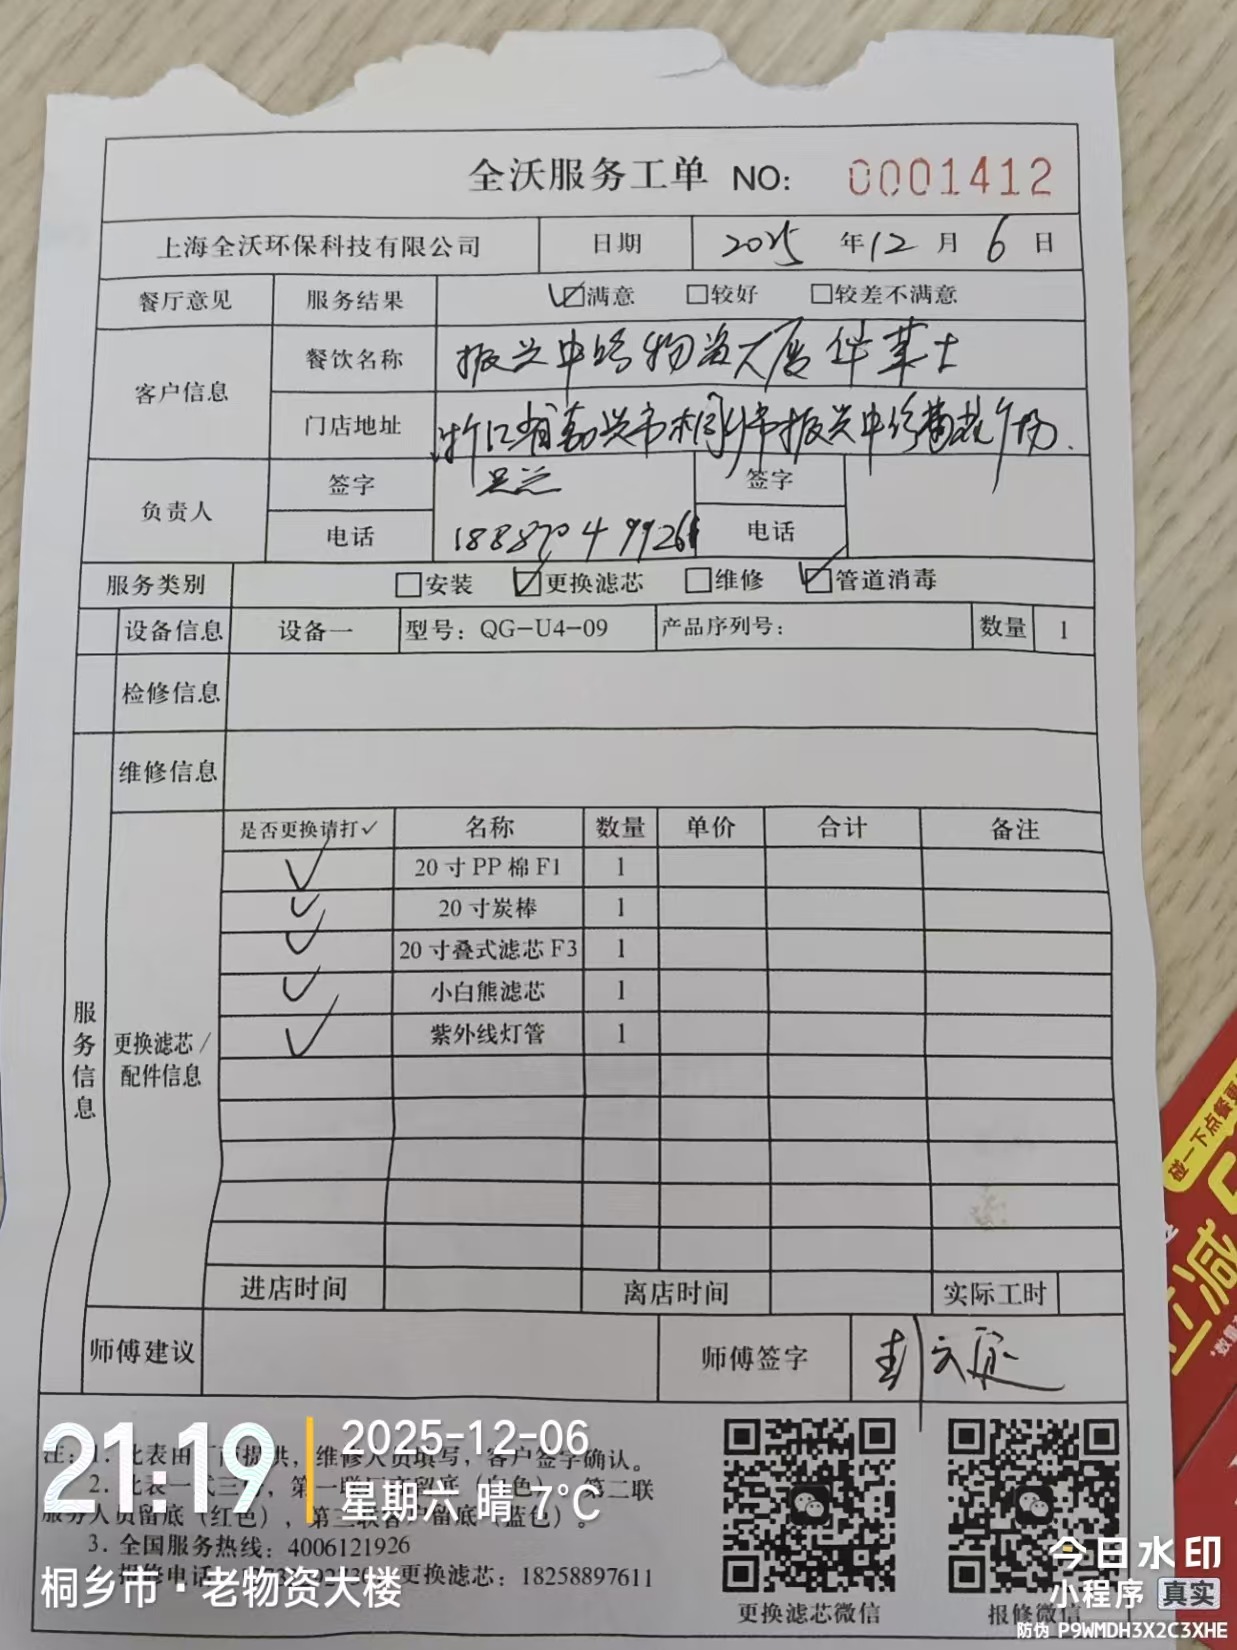 全沃服务工单 NO: 0001412
上海全沃环保科技有限公司 日期 2025 年 12 月 6 日
餐厅意见 服务结果 ☑满意 □较好 □较差不满意
客户信息 餐饮名称 振兴中路物资大厦华莱士
门店地址 浙江省嘉兴市桐乡市振兴中路
负责人 签字 签字
电话 电话
服务类别 □安装 ☑更换滤芯 □维修 ☑管道消毒
设备信息 设备一 型号：QG-U4-09 产品序列号： 数量 1
检修信息
维修信息
服务信息
更换滤芯/
配件信息
是否更换请打✓ 名称 数量 单价 合计 备注
✓ 20寸PP棉F1 1
✓ 20寸炭棒 1
✓ 20寸叠式滤芯F3 1
✓ 小白熊滤芯 1
✓ 紫外线灯管 1
进店时间 离店时间 实际工时
师傅建议 师傅签字
注：1. 此表由厂商提供，维修人员填写，客户签字确认。
2. 此表一式三联，第一联 留底（白色） 第二联
服务人员留底（红色），第三联客户留底（蓝色）。
3. 全国服务热线：4006121926
更换滤芯：18258897611
更换滤芯微信 报修微信
21:19
2025-12-06
星期六 晴 7°C
桐乡市·老物资大楼
今日水印
小程序 真实
防伪 P9WMDH3X2C3XHE
碰一下点餐更
立减